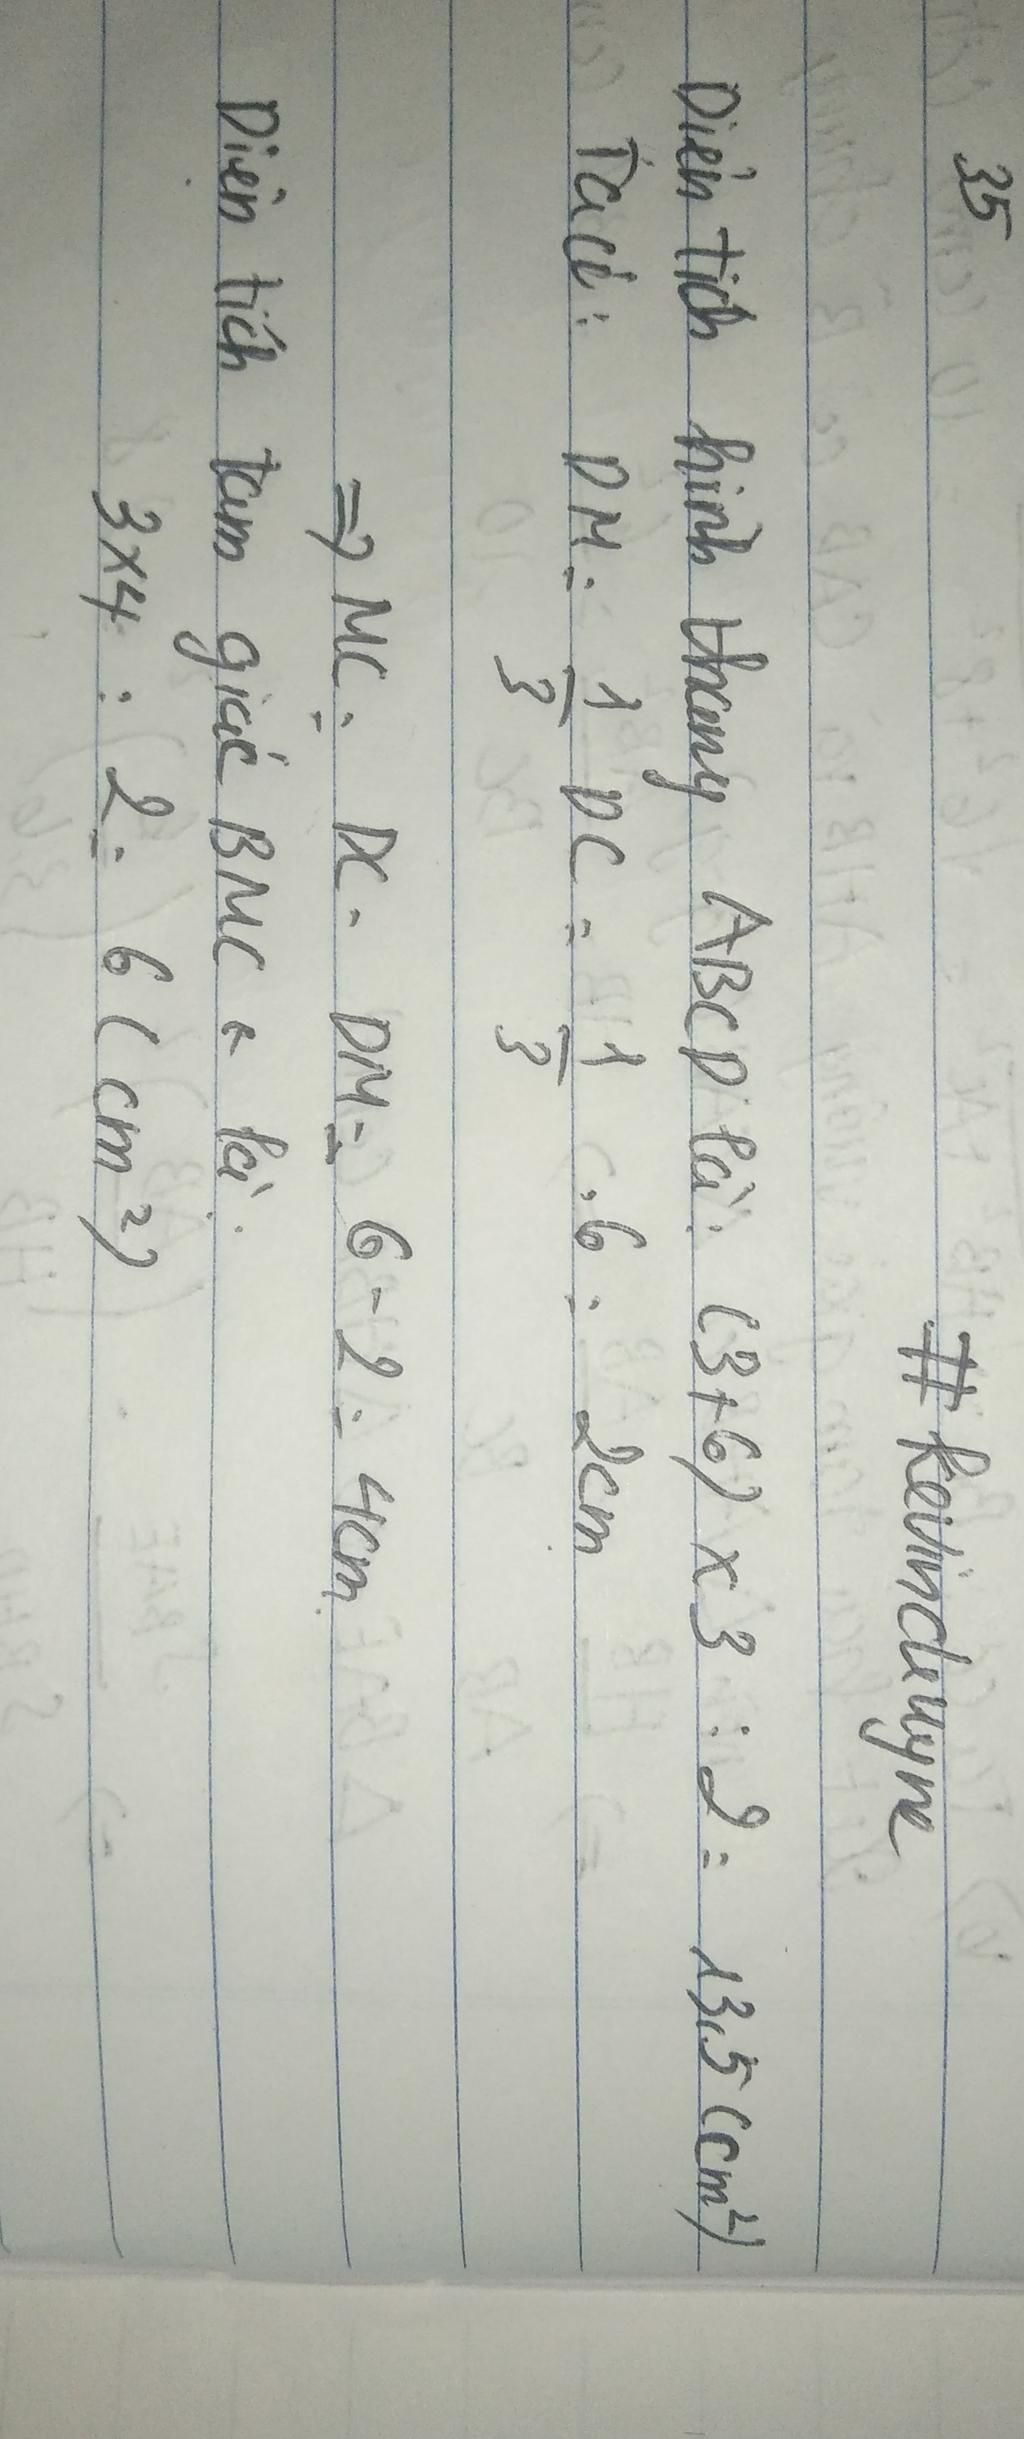 35
# kevinclevyne
Diện tích hình thang ABCD là: (3+6) x 3 : 2 = 13,5 (cm²)
Ta có: DM = 1/3 DC = 1/3 . 6 = 2cm
=> MC = DC - DM = 6 - 2 = 4cm
Diện tích tam giác BMC là:
3x4 : 2 = 6 (cm²)